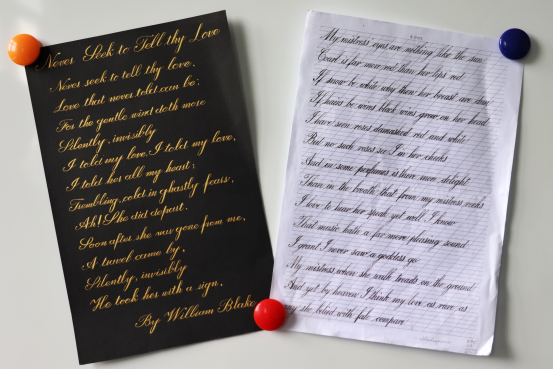 Never Seek to Tell thy Love
Never seek to tell thy love,
Love that never told can be;
For the gentle wind doth move
Silently, invisibly
I told my love, I told my love,
I told her all my heart;
Trembling, cold in ghastly fears,
Ah! She did depart.
Soon after she was gone from me,
A travel came by,
Silently, invisibly
He took her with a sigh,
By William Blake
My mistress eyes are nothing like the sun
Coral is far more red than her lips red
If snow be white why then her breast are dun
If hairs be wires black wires grow on her head
I have seen roses damasked red and white
But no such roses see I in her cheeks
And in some perfumes is there more delight
Than in the breath that from my mistress reeks
I love to hear her speak yet well I know
That music hath a far more pleasing sound
I grant I never saw a goddess go
My mistress when she walk treads on the ground
And yet by heaven I think my love as rare as
any she belied with fals compare